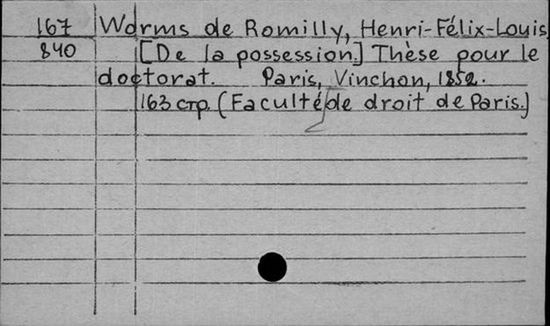 167 Worms de Romilly, Henri-Félix-Louis
840 [De la possession.] Thèse pour le
doctorat. Paris, Vinchon, 1852.
163 стр. (Faculté de droit de Paris.)